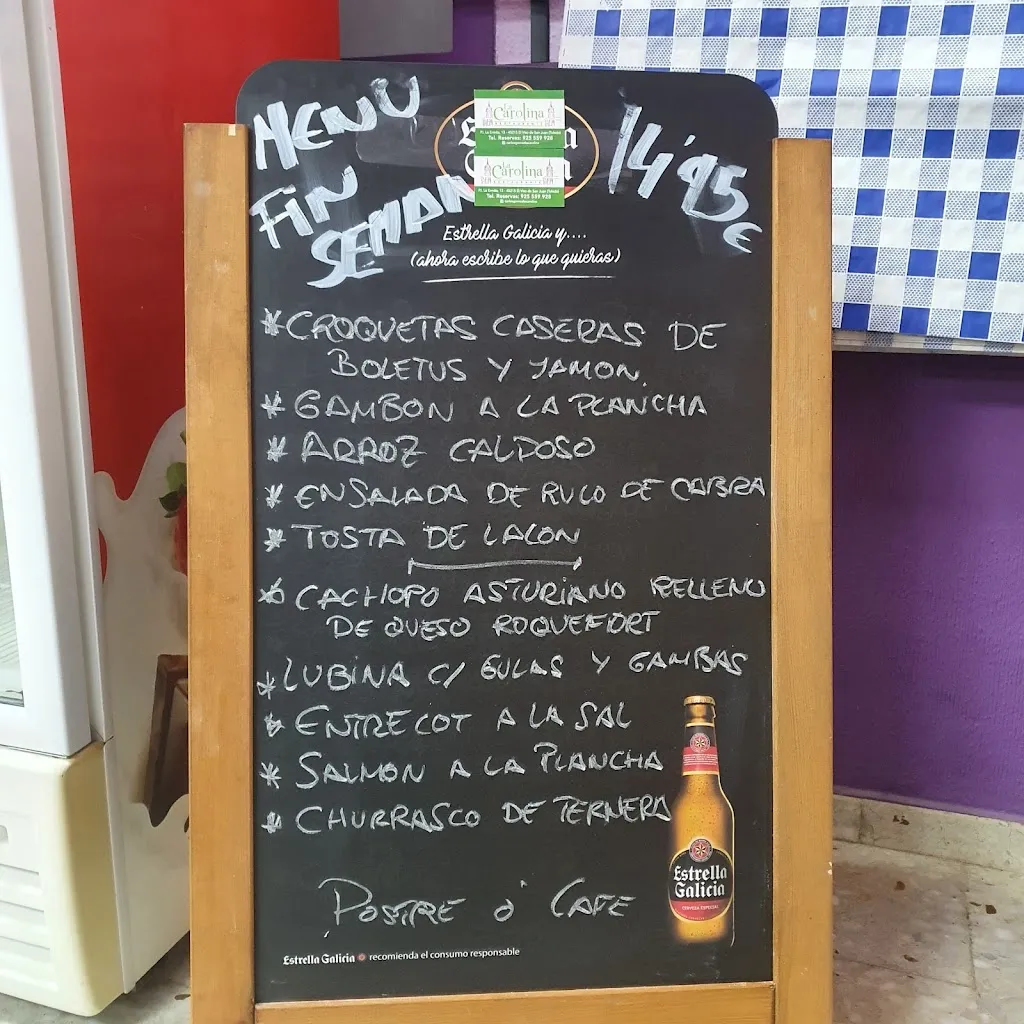 MENÚ
FIN
SEMANA
14'95€
La Carolina
RESTAURANTE
Tel. Reservas: 925 559 928
La Carolina
RESTAURANTE
Tel. Reservas: 925 559 928
Estrella Galicia y....
(ahora escribe lo que quieras)
* CROQUETAS CASERAS DE
BOLETUS Y JAMON.
* GAMBON A LA PLANCHA
* ARROZ CALDOSO
* ENSALADA DE RULO DE CABRA
* TOSTA DE LACON
* CACHOPO ASTURIANO RELLENO
DE QUESO ROQUEFORT
* LUBINA C/ GULAS Y GAMBAS
* ENTRECOT A LA SAL
* SALMON A LA PLANCHA
* CHURRASCO DE TERNERA
POSTRE Ó CAFE
Estrella
Galicia
CERVEZA ESPECIAL
Estrella Galicia recomienda el consumo responsable